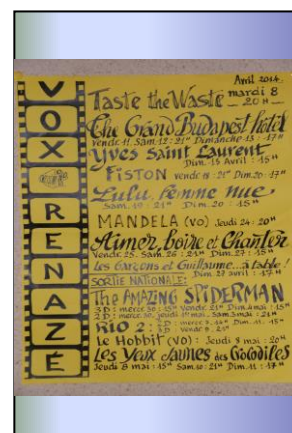 VOX
RENAZÉ
Avril 2014.
Taste the Waste mardi 8
20H
The Grand Budapest hôtel
Vendr. 11. Sam. 12: 21H Dimanche 13: 17H
Yves Saint Laurent
Dim. 13 Avril: 15H
FISTON vendr 18: 21H Dim. 20: 17H
Lulu, femme nue
Sam. 19: 21H Dim. 20: 15H
MANDELA (VO) Jeudi 24: 20H
Aimer, boire et Chanter
Vendr 25. Sam. 26: 21H Dim. 27: 15H
Les Garçons et Guillaume... à table!
Dim. 27 avril: 17H
SORTIE NATIONALE:
The AMAZING SPIDERMAN
3D: mercr 30: 15H Vendr 2: 21H Dim 4 mai: 15H
2D: mercr 30. jeudi 1er mai. Sam 3 mai: 21H
RIO 2:
Le Hobbit (VO): Jeudi 8 mai: 20H
Les Yeux Jaunes des Crocodiles
Jeudi 8 mai: 15H Sam. 10: 21H Dim. 11: 17H